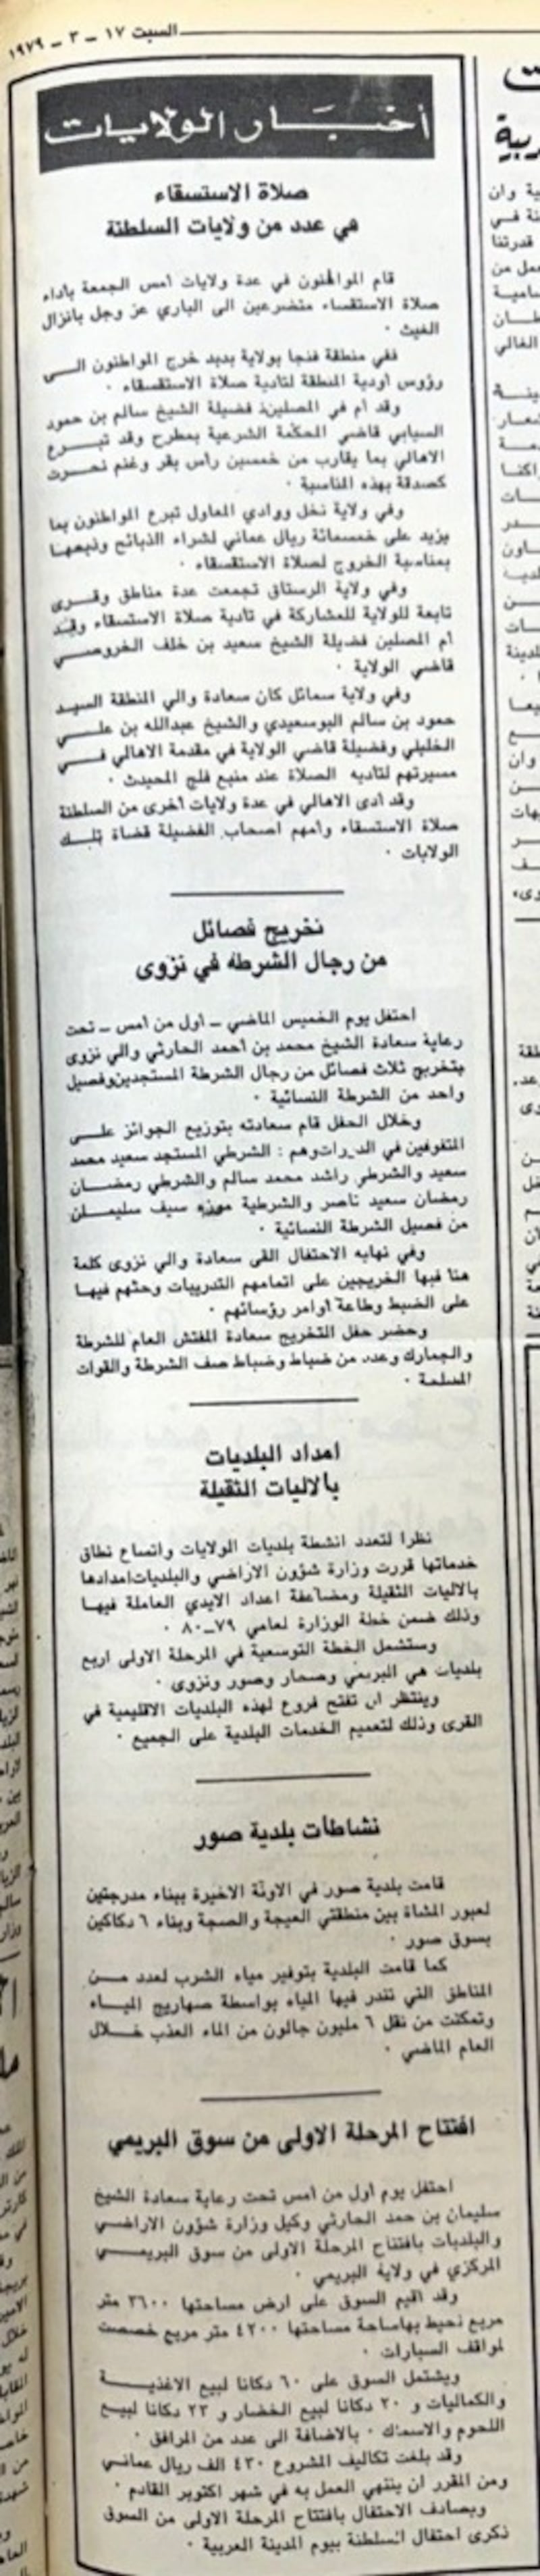 السبت ١٧ - ٣ - ١٩٧٩
أخبار الولايات
صلاة الاستسقاء
في عدد من ولايات السلطنة
قام المواطنون في عدة ولايات أمس الجمعة بأداء
صلاة الاستقساء متضرعين الى الباري عز وجل بانزال
الغيث ·
ففي منطقة فنجا بولاية بدبد خرج المواطنون الـى
رؤوس أودية المنطقة لتادية صلاة الاستقسقاء ·
وقد أم في المصلين فضيلة الشيخ سالم بن حمود
السيابي قاضي المحكمة الشرعية بمطرح وقد تبـرع
الاهالي بما يقارب من خمسين رأس بقر وغنم نحـرت
كصدقة بهذه المناسبة ·
وفي ولاية نخل ووادي المعاول تبرع المواطنون بما
يزيد على خمسمائة ريال عماني لشراء الذبائح وذبحهـا
بمناسبة الخروج لصلاة الاستقسقاء ·
وفي ولاية الرستاق تجمعت عدة مناطق وقـرى
تابعة للولاية للمشاركة في تادية صلاة الاستسقاء وقـد
أم المصلين فضيلة الشيخ سعيد بن خلف الخروصـي
قاضي الولاية ·
وفي ولاية سمائل كان سعادة والي المنطقة السيـد
حمود بن سالم البوسعيدي والشيخ عبدالله بن علـي
الخليلي وفضيلة قاضي الولاية في مقدمة الاهالي فـي
مسيرتهم لتأديه الصلاة عند منبع فلج المحيدث ·
وقد أدى الاهالي في عدة ولايات أخرى من السلطنة
صلاة الاستسقاء وأمهم اصحاب الفضيلة قضاة تلـك
الولايات ·
تخريج فصائل
من رجال الشرطه في نزوى
احتفل يوم الخميس الماضي - أول من أمس - تحت
رعاية سعادة الشيخ محمد بن أحمد الحارثي والي نزوى
بتخريج ثلاث فصائل من رجال الشرطة المستجدين وفصيل
واحد من الشرطة النسائية ·
وخلال الحفل قام سعادته بتوزيع الجوائز علـى
المتفوقين في الدورات وهم : الشرطي المستجد سعيد محمد
سعيد والشرطي راشد محمد سالم والشرطي رمضـان
رمضان سعيد ناصر والشرطية موزه سيف سليمـان
من فصيل الشرطة النسائية ·
وفي نهايه الاحتفال القى سعادة والي نزوى كلمة
هنأ فيها الخريجين على اتمامهم التدريبات وحثهم فيهـا
على الضبط وطاعة أوامر رؤسائهم ·
وحضر حفل التخريج سعادة المفتش العام للشرطة
والجمارك وعدد من ضباط وضباط صف الشرطة والقوات
المسلحة ·
امداد البلديات
بالاليات الثقيلة
نظرا لتعدد انشطة بلديات الولايات واتساع نطاق
خدماتها قررت وزارة شؤون الاراضي والبلديات امدادها
بالاليات الثقيلة ومضاعفة اعداد الايدي العاملة فيهـا
وذلك ضمن خطة الوزارة لعامي ٧٩-٨٠ ·
وستشمل الخطة التوسعية في المرحلة الاولى اربع
بلديات هي البريمي وصحار وصور ونزوى ·
وينتظر ان تفتح فروع لهذه البلديات الاقليمية في
القرى وذلك لتعميم الخدمات البلدية على الجميع ·
نشاطات بلدية صور
قامت بلدية صور في الاونة الاخيرة ببناء مدرجتين
لعبور المشاة بين منطقتي العيجة والصجة وبناء ٦ دكاكين
بسوق صور ·
كما قامت البلدية بتوفير مياه الشرب لعدد مـن
المناطق التي تندر فيها المياه بواسطة صهاريج الميـاه
وتمكنت من نقل ٦ مليون جالون من الماء العذب خـلال
العام الماضي ·
افتتاح المرحلة الاولى من سوق البريمي
احتفل يوم أول من أمس تحت رعاية سعادة الشيخ
سليمان بن حمد الحارثي وكيل وزارة شؤون الاراضـي
والبلديات بافتتاح المرحلة الاولى من سوق البريمـي
المركزي في ولاية البريمي ·
وقد اقيم السوق على ارض مساحتها ٣٦٠٠ متر
مربع تحيط بهاساحة مساحتها ٤٢٠٠ متر مربع خصصت
لمواقف السيارات ·
ويشتمل السوق على ٦٠ دكانا لبيع الاغذيـة
والكماليات و ٢٠ دكانا لبيع الخضار و ٢٣ دكانا لبيـع
اللحوم والاسماك · بالاضافة الى عدد من المرافق ·
وقد بلغت تكاليف المشروع ٤٣٠ الف ريال عمانـي
ومن المقرر ان ينتهي العمل به في شهر اكتوبر القادم ·
ويصادف الاحتفال بافتتاح المرحلة الاولى من السوق
ذكرى احتفال السلطنة بيوم المدينة العربية ·